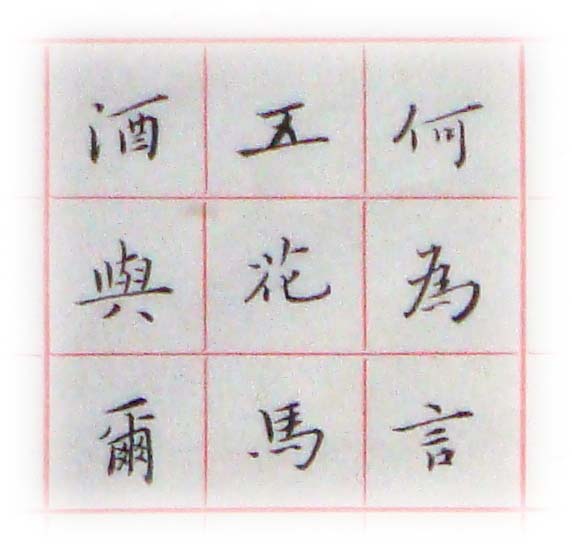 何為言
五花馬
酒與爾